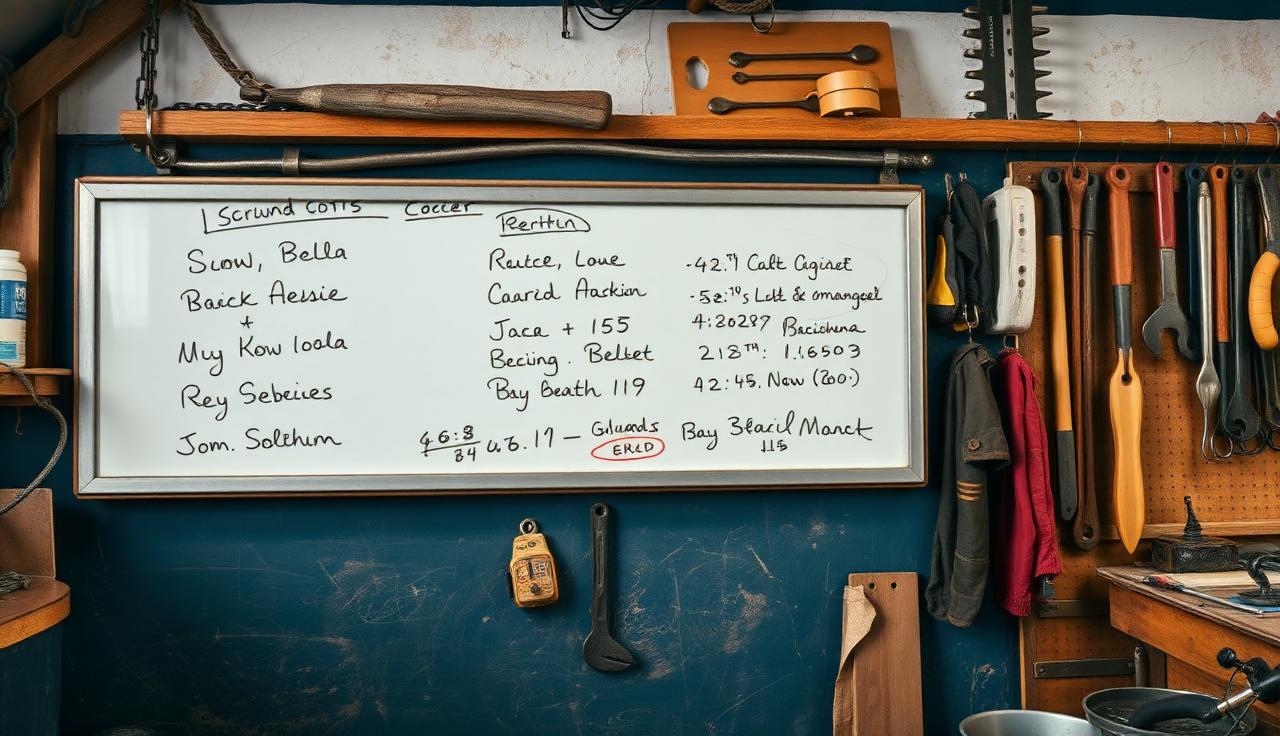 Scrund COTTS Cocter
Rerttin
Scow, Bella
Baick Aessie
+
Muy Kow loola
Rey Sebeices
Jom. Solthum
Reutce, Loue
Caarid Aackin
Jaca + 155
Beciing. Beltet
Bay Beath 119
-42. Calt Caginet
Ldt & omangcet
4:20287 Bacichena
218TH: 1.16503
42:45. New (200.)
46:8
84
46.17 — Gduards
ERLD
Bay 3tacil Manct
115